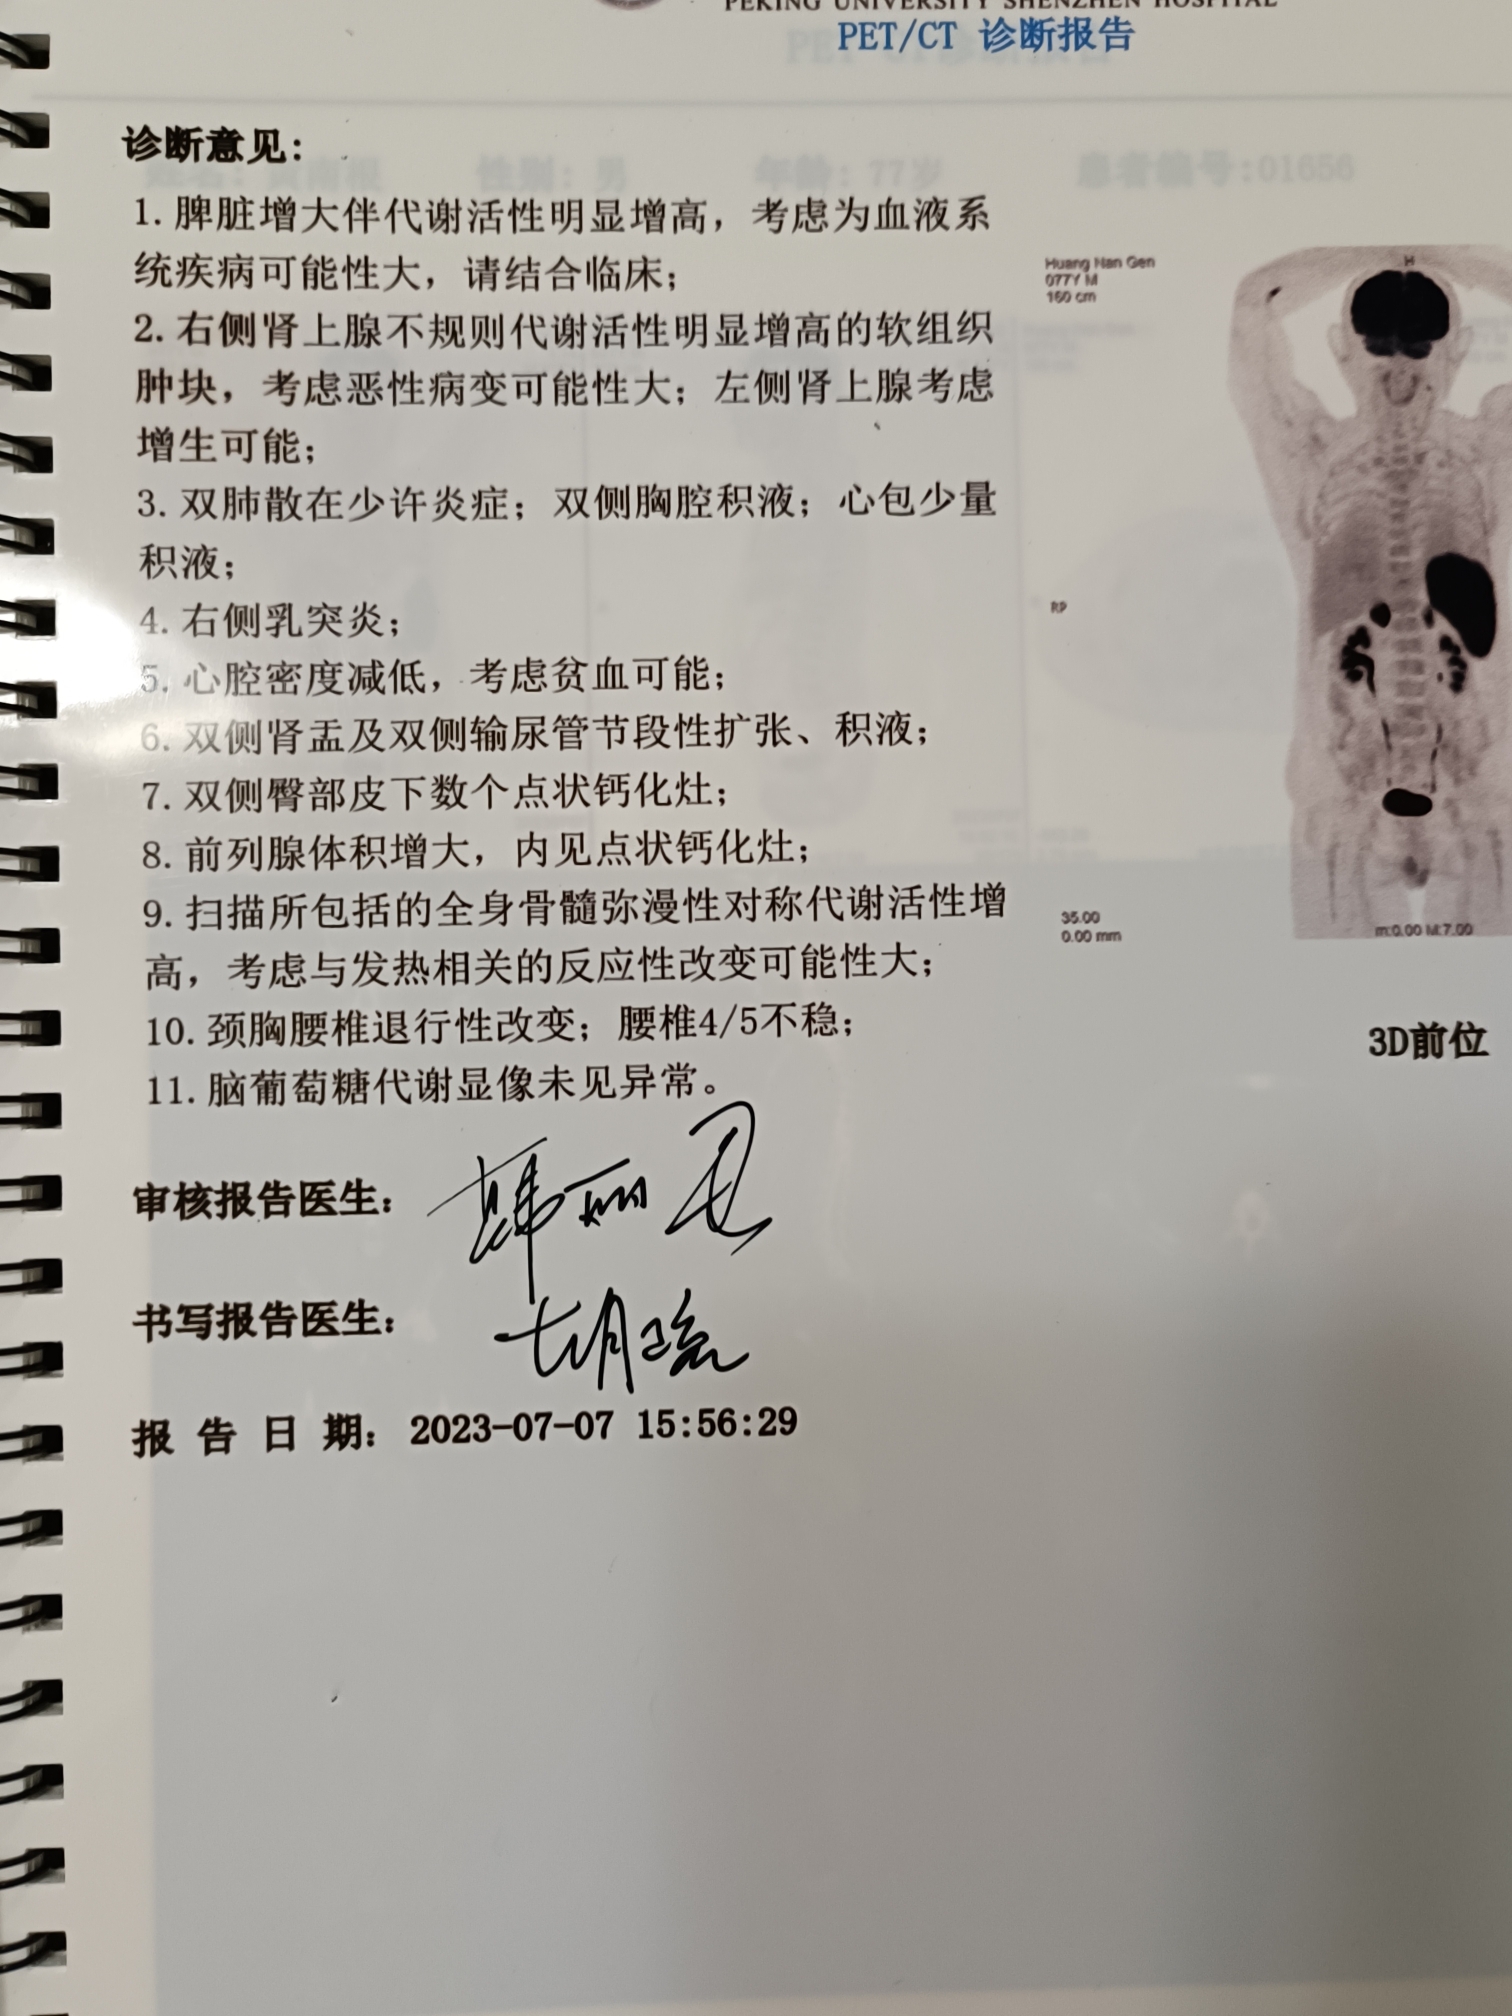 PEKING UNIVERSITY SHENZHEN HOSPITAL
PET/CT 诊断报告
诊断意见：
性别：男
年龄：77岁
患者编号:01656
1.脾脏增大伴代谢活性明显增高，考虑为血液系
统疾病可能性大，请结合临床；
2.右侧肾上腺不规则代谢活性明显增高的软组织
肿块，考虑恶性病变可能性大；左侧肾上腺考虑
增生可能；
3.双肺散在少许炎症；双侧胸腔积液；心包少量
积液；
4.右侧乳突炎；
5.心腔密度减低，考虑贫血可能；
6.双侧肾盂及双侧输尿管节段性扩张、积液；
7.双侧臀部皮下数个点状钙化灶；
8.前列腺体积增大，内见点状钙化灶；
9.扫描所包括的全身骨髓弥漫性对称代谢活性增
高，考虑与发热相关的反应性改变可能性大；
10.颈胸腰椎退行性改变；腰椎4/5不稳；
11.脑葡萄糖代谢显像未见异常。
审核报告医生：
书写报告医生：
报 告 日 期：2023-07-07 15:56:29
Huang Nan Gen
077Y M
160 cm
H
RP
35.00
0.00 mm
m:0.00 M:7.00
3D前位